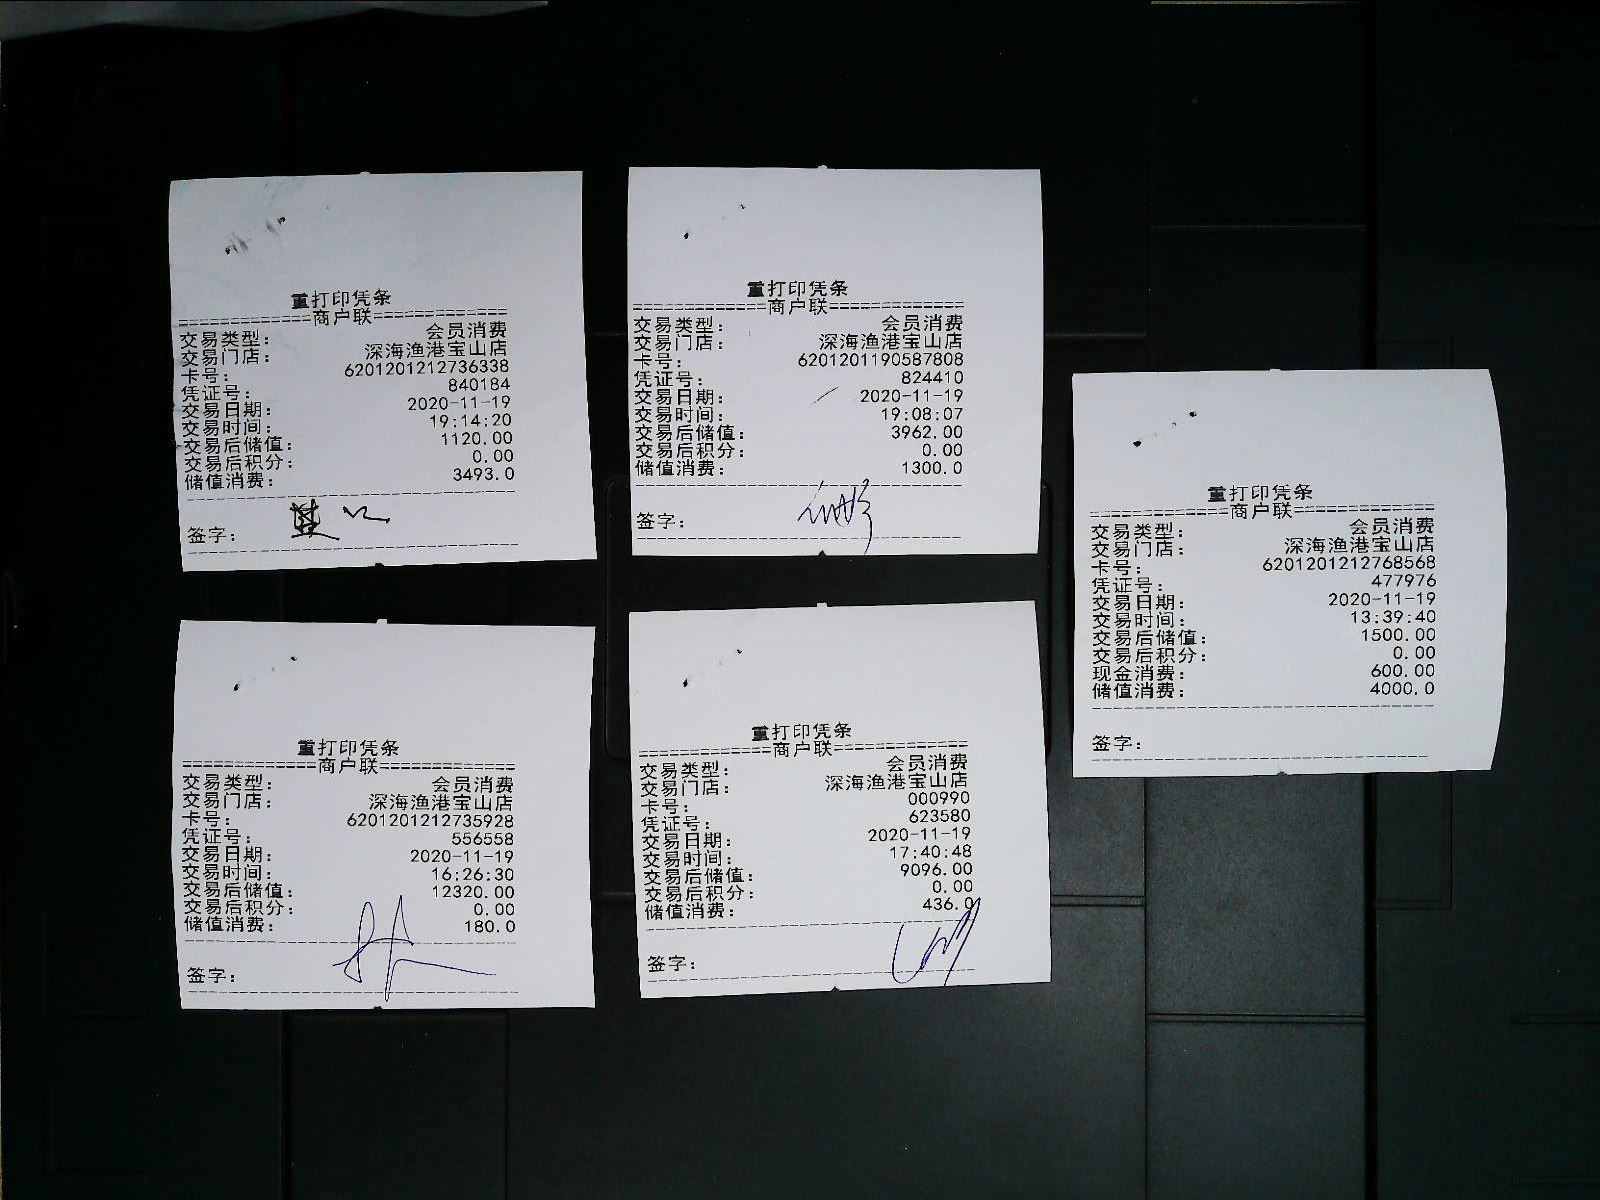 重打印凭条
============商户联============
交易类型: 会员消费
交易门店: 深海渔港宝山店
卡号: 6201201212736338
凭证号: 840184
交易日期: 2020-11-19
交易时间: 19:14:20
交易后储值: 1120.00
交易后积分: 0.00
储值消费: 3493.0
签字:
重打印凭条
============商户联============
交易类型: 会员消费
交易门店: 深海渔港宝山店
卡号: 6201201190587808
凭证号: 824410
交易日期: 2020-11-19
交易时间: 19:08:07
交易后储值: 3962.00
交易后积分: 0.00
储值消费: 1300.0
签字:
重打印凭条
============商户联============
交易类型: 会员消费
交易门店: 深海渔港宝山店
卡号: 6201201212768568
凭证号: 477976
交易日期: 2020-11-19
交易时间: 13:39:40
交易后储值: 1500.00
交易后积分: 0.00
现金消费: 600.00
储值消费: 4000.0
签字:
重打印凭条
============商户联============
交易类型: 会员消费
交易门店: 深海渔港宝山店
卡号: 6201201212735928
凭证号: 556558
交易日期: 2020-11-19
交易时间: 16:26:30
交易后储值: 12320.00
交易后积分: 0.00
储值消费: 180.0
签字:
重打印凭条
============商户联============
交易类型: 会员消费
交易门店: 深海渔港宝山店
卡号: 000990
凭证号: 623580
交易日期: 2020-11-19
交易时间: 17:40:48
交易后储值: 9096.00
交易后积分: 0.00
储值消费: 436.0
签字: